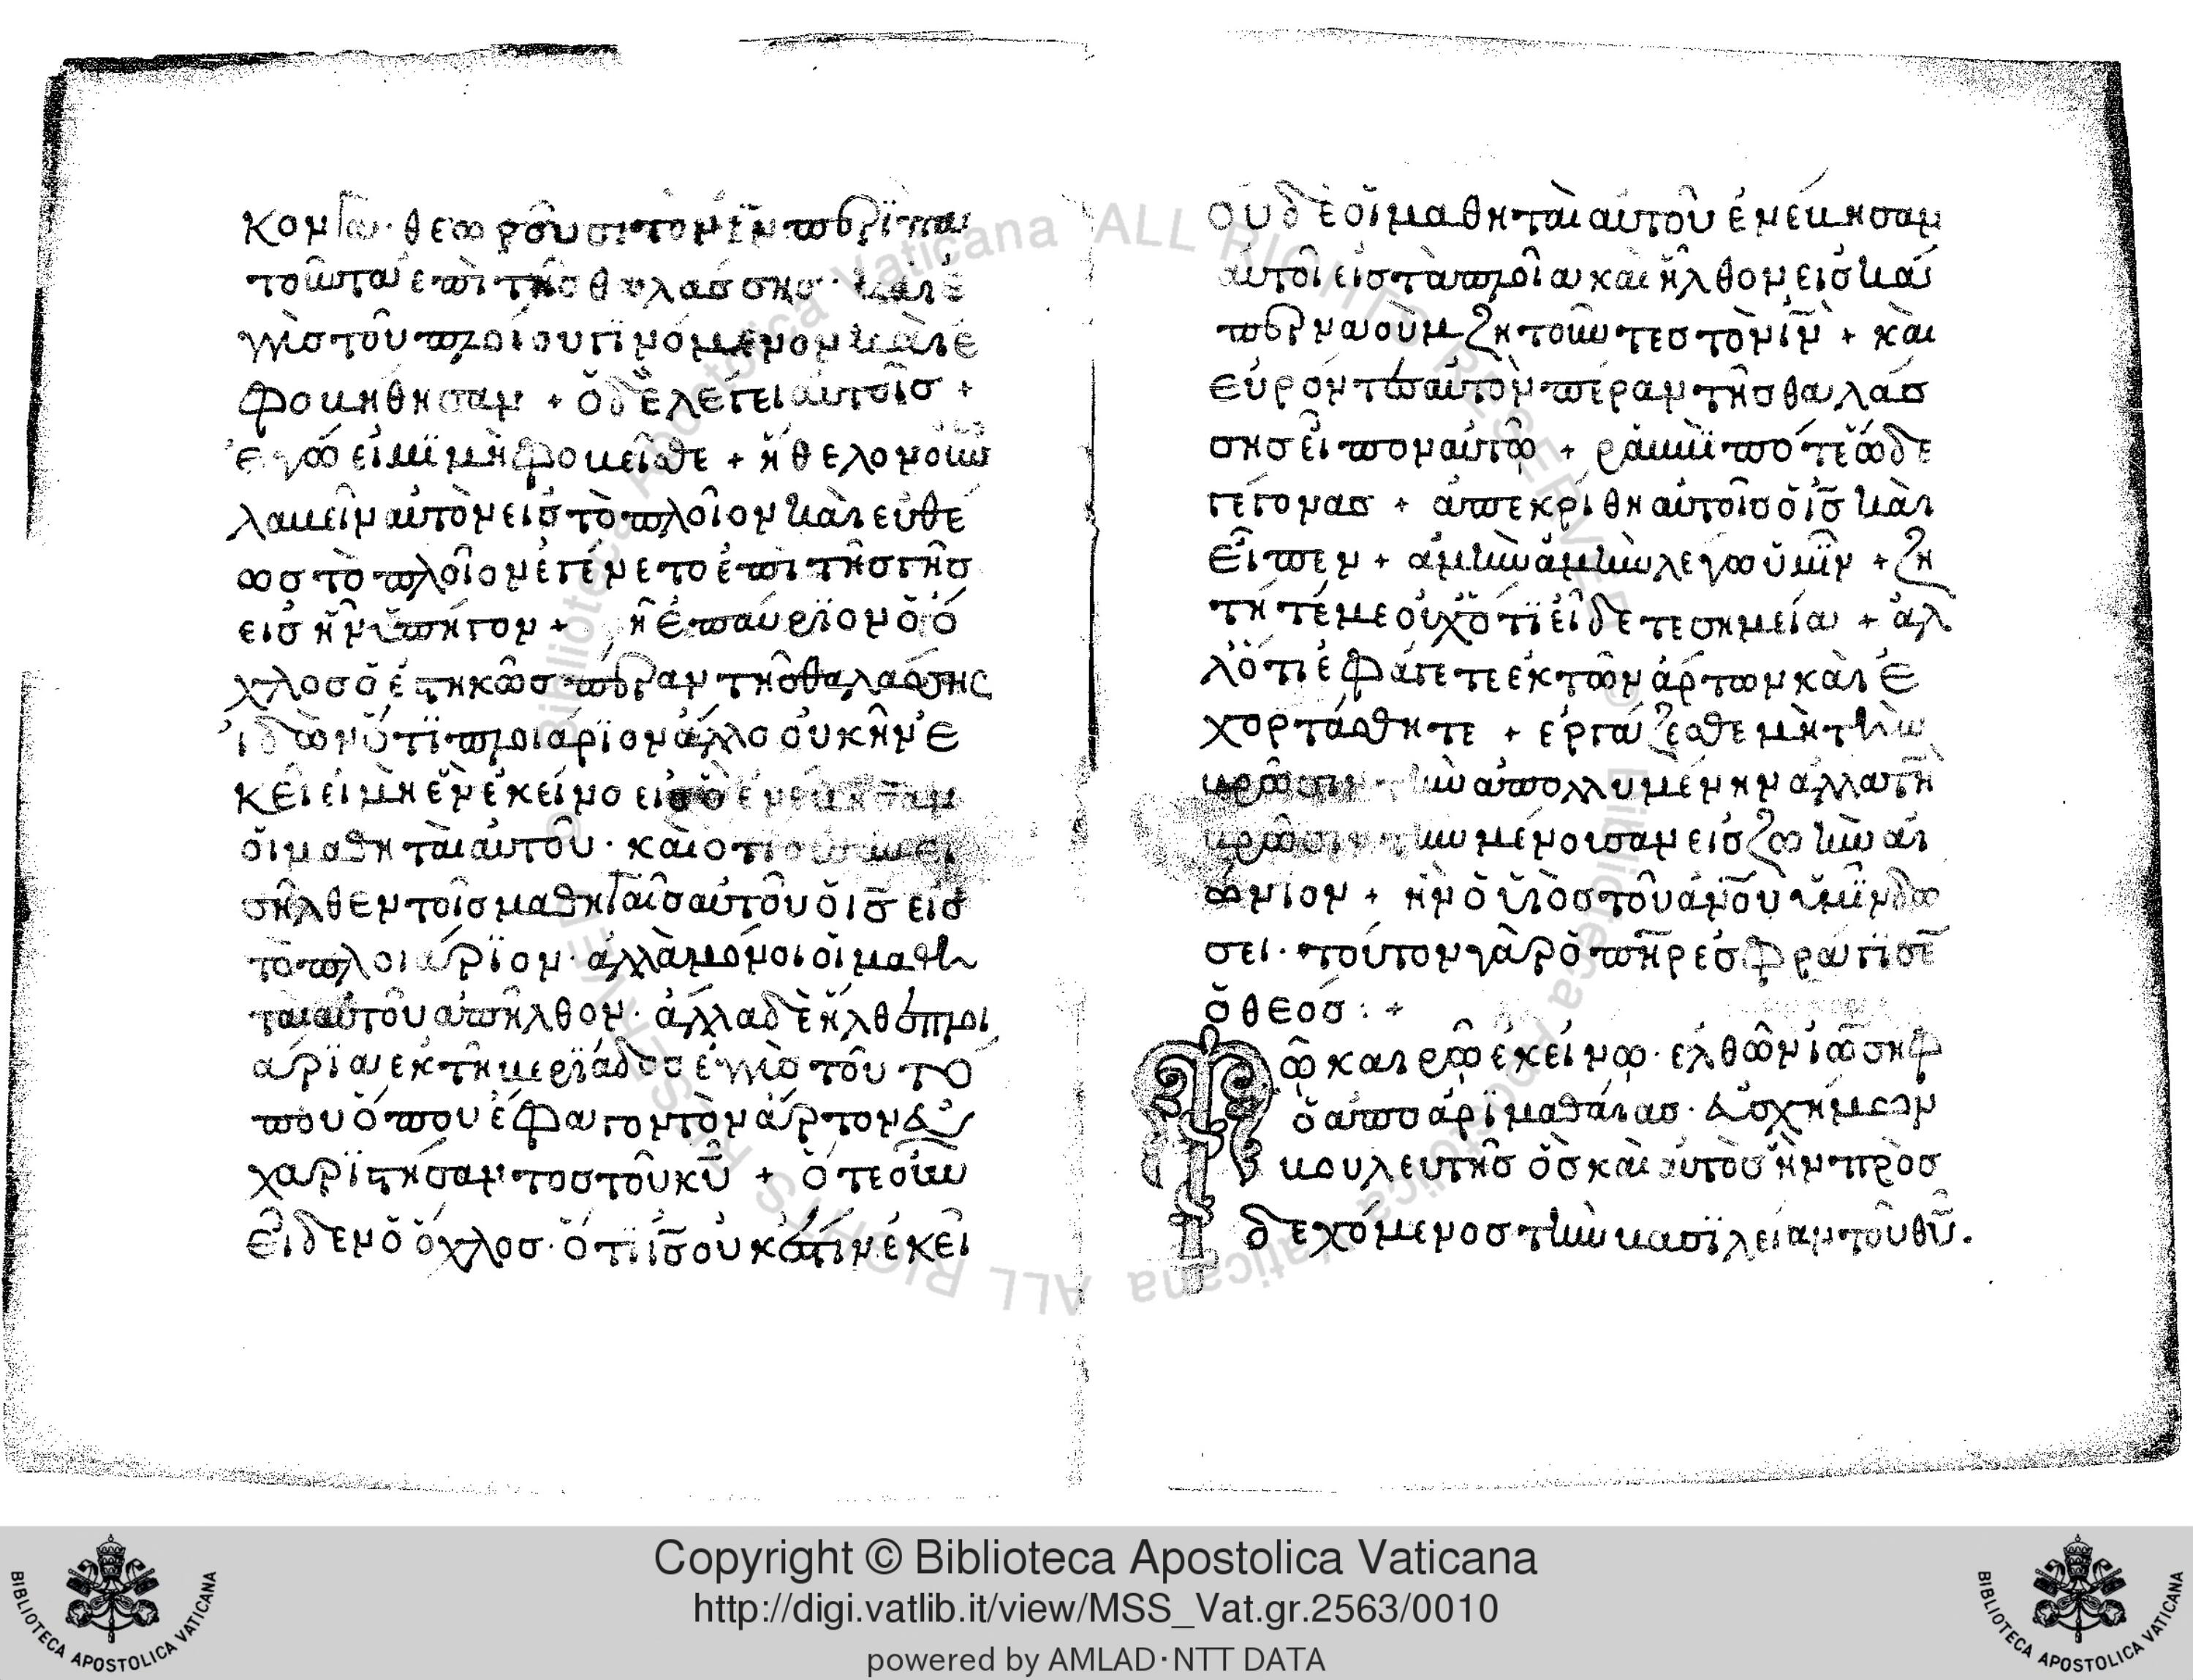 κοντα· θεωροῦσι τὸν ἰν περιπα
τοῦντα ἐπὶ τῆς θαλάσσης· καὶ ἐ
γγὺς τοῦ πλοίου γϊνόμενον καὶ ἐ
φοβήθησαν + ὁ δὲ λέγει αὐτοῖς +
ἐγώ εἰμϊ μὴ φοβεῖσθε + ἤθελον οὖν
λαβεῖν αὐτὸν εἰς τὸ πλοῖον καὶ εὐθέ
ως τὸ πλοῖον ἐγένετο ἐπὶ τῆς γῆς
εἰς ἣν ὑπήγον + ῆ ἐπαύρϊον ὁ ὄ
χλος ὁ ἑστηκὼς πέραν τῆς θαλάσσης
ἰδὼν ὅτϊ πλοιάρϊον ἄλλο οὐκ ἦν ἐ
κεῖ εἰ μὴ ἓν ἐκείνο εἰς ὃ ἐνέβησαν
οἱ μαθηταὶ αὐτοῦ· καὶ ὅτι οὐ συνει
σῆλθεν τοῖς μαθηταῖς αὐτοῦ ὁ ις εἰς
τὸ πλοιάρϊον· ἀλλὰ μόνοι οἱ μαθη
ταὶ αὐτοῦ ἀπῆλθον· ἄλλα δὲ ἦλθον πλοι
άρϊα ἐκ τῆ βερϊάδος ἐγγὺς τοῦ τό
που ὅπου ἔφαγον τὸν ἄρτον εὐ
χαρϊστήσαντος τοῦ κυ + ὅτε οὖν
εἶδεν ὁ ὄχλος· ὅτϊ ις οὐκ ἔστιν ἐκεῖ
οὐδὲ οἱ μαθηταὶ αὐτοῦ ἐνέβησαν
αὐτοὶ εἰς τὰ πλοῖα καὶ ἦλθον εἰς κα
περναοὺμ ζητοῦντες τὸν ιν + καὶ
εὑρόντες αὐτὸν πέραν τῆς θαλάσ
σης εἶπον αὐτῷ + ῥαββϊ πότε ὧδε
γέγονας + ἀπεκρίθη αὐτοῖς ὁ ις καὶ
εἶπεν + ἀμὴν ἀμὴν λέγω ὑμῖν + ζη
τῆτέ με οὐχ ὅτϊ εἴδετε σημεία + ἀλ
λ᾽ ὅτι ἐφάγετε ἐκ τῶν ἄρτων καὶ ἐ
χορτάσθητε + ἐργάζεσθε μὴ τὴν
βρῶσιν τὴν ἀπολλυμένην ἀλλα τὴ
βρῶσιν τὴν μένουσαν εἰς ζωὴν αἰ
ώνιον + ἣν ὁ ὑιὸς τοῦ ανου ὑμῖν δώ
σει· τούτον γὰρ ὁ πηρ ἐσφράγϊσε
ὁ θεός : +
Τῷ καιρῷ ἐκείνῳ· ἐλθὼν ἰωσὴφ
ὁ ἀπο ἀρϊμαθαίας· εὐσχήμων
βουλευτὴς ὃς καὶ αὐτὸς ἦν προσ
δεχόμενος τὴν βασϊλείαν τοῦ θυ.
Copyright © Biblioteca Apostolica Vaticana
http://digi.vatlib.it/view/MSS_Vat.gr.2563/0010
powered by AMLAD·NTT DATA
BIBLIOTECA APOSTOLICA VATICANA
BIBLIOTECA APOSTOLICA VATICANA